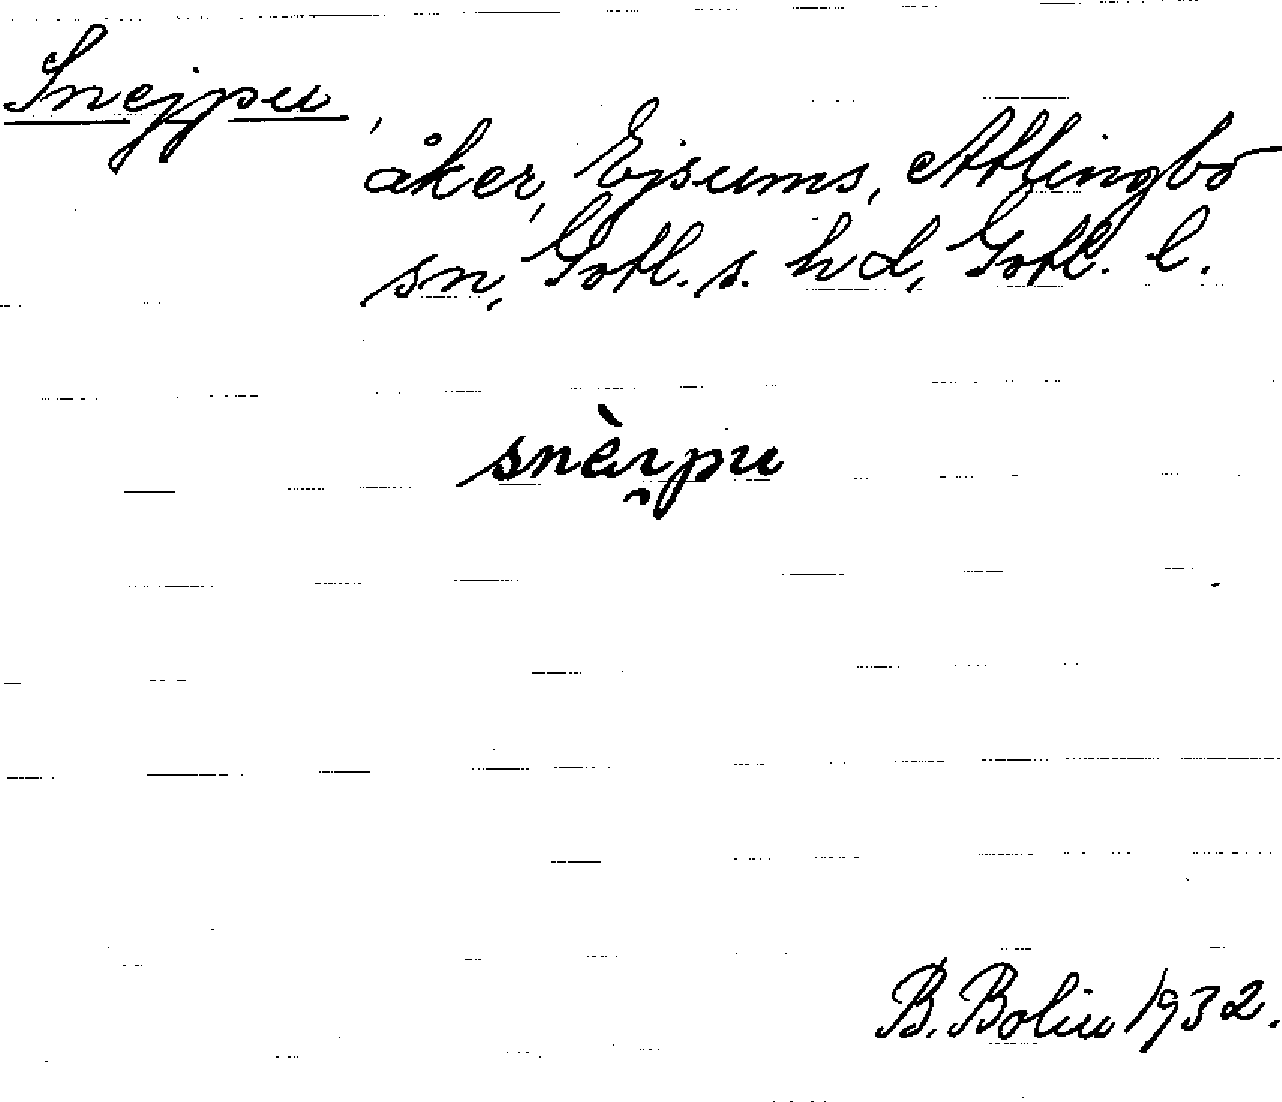 Snejpu,
åker, Ejsums, Atlingbo
sn, Gotl. s. hd, Gotl. l.
snèı̯pu
B. Bolin 1932.